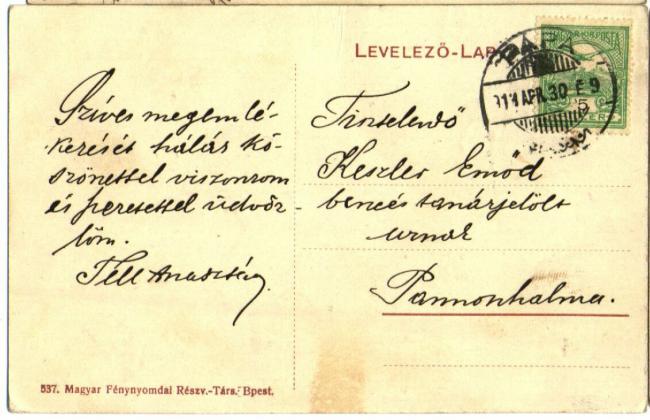 LEVELEZŐ-LAP
PÁPA
911 APR. 30 E 9
MAGYAR KIR. POSTA
5
Szíves megemlé-
kerését hálás kö-
szönettel viszonrom
és szeretettel üdvöz-
löm.
Tisztelendő
Keszler Emöd
bencés tanárjelölt
urnak
Pannonhalma.
537. Magyar Fénynyomdai Részv.-Társ. Bpest.